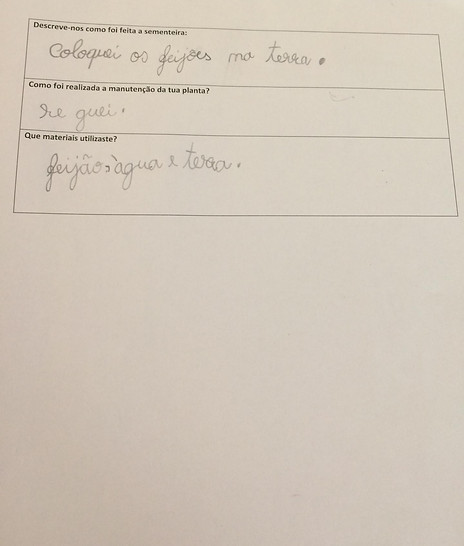 Descreve-nos como foi feita a sementeira:
Coloquei os feijões na terra.
Como foi realizada a manutenção da tua planta?
Re guei.
Que materiais utilizaste?
feijão, àgua e terra.